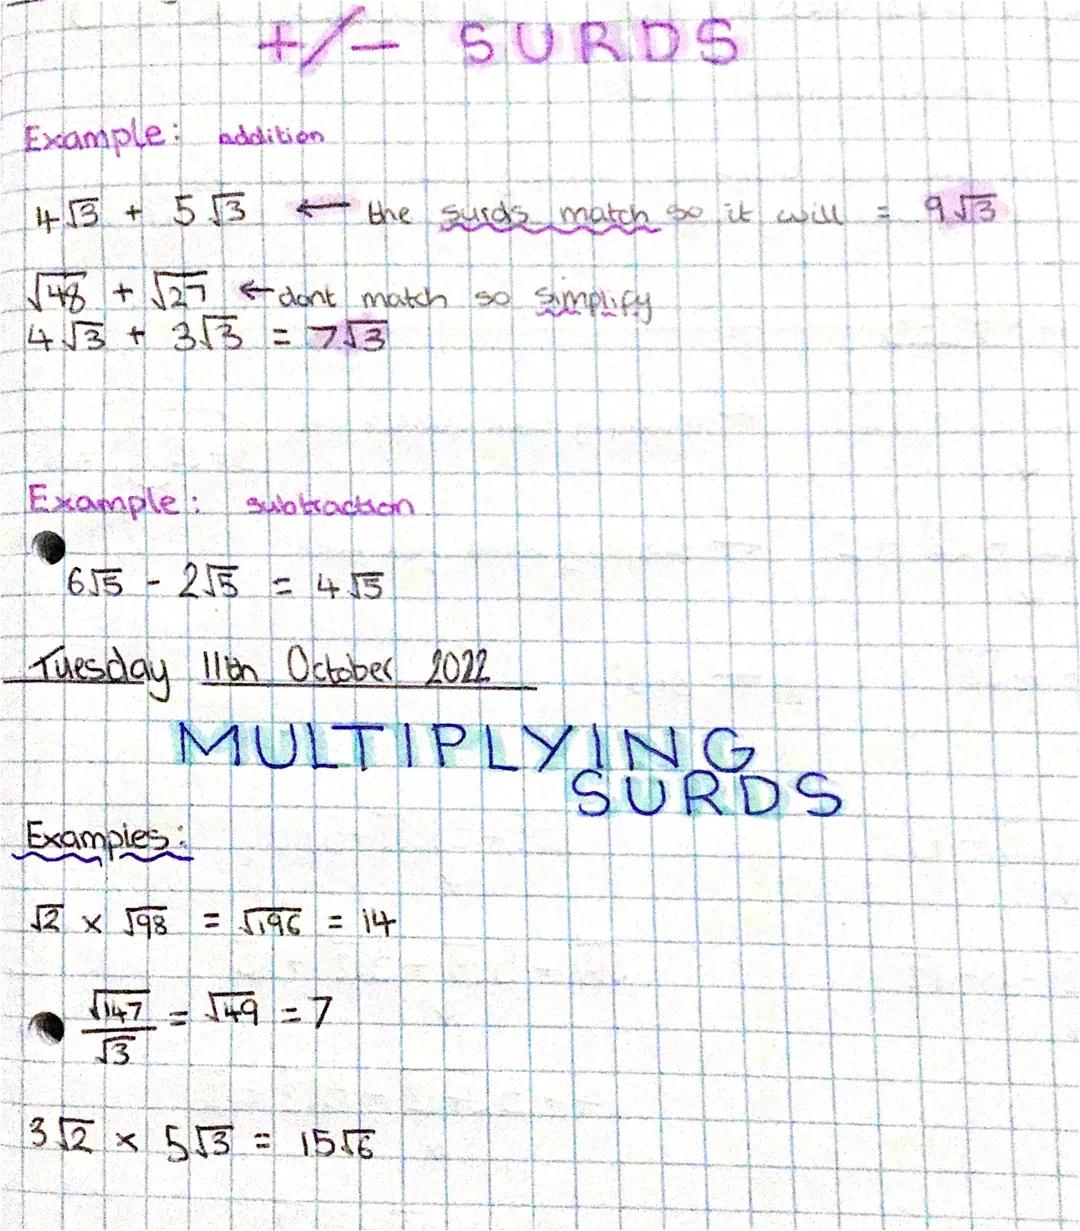 +/- SURDS
Example: addition
4√3 + 5√3 ← the surds match so it will = 9√3
√48 + √27 ← dont match so simplify
4√3 + 3√3 = 7√3
Example: subtraction
6√5 - 2√5 = 4√5
Tuesday 11th October 2022
MULTIPLYING
SURDS
Examples:
√2 × √98 = √196 = 14
√147/√3 = √49 = 7
3√2 × 5√3 = 15√6